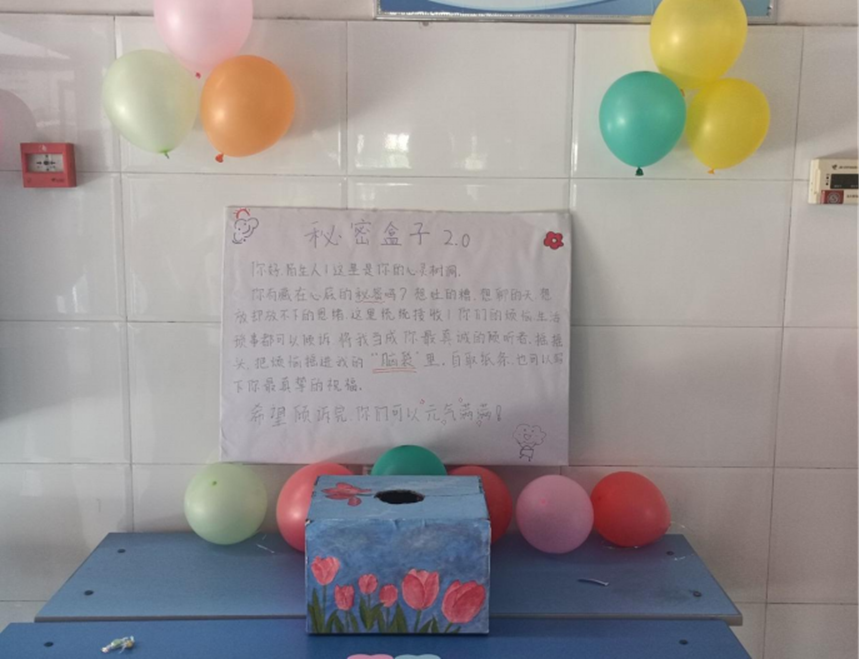 秘密盒子 2.0
你好,陌生人!这里是你的心灵树洞.
你有藏在心底的秘密吗?想吐的槽,想聊的天,想
放却放不下的思绪,这里统统接收!你们的烦恼生活
琐事都可以倾诉,将我当成你最真诚的倾听者,摇摇
头,把烦恼摇进我的"脑袋"里,自取纸条,也可以留
下你最真挚的祝福.
希望倾诉完,你们可以元气满满!